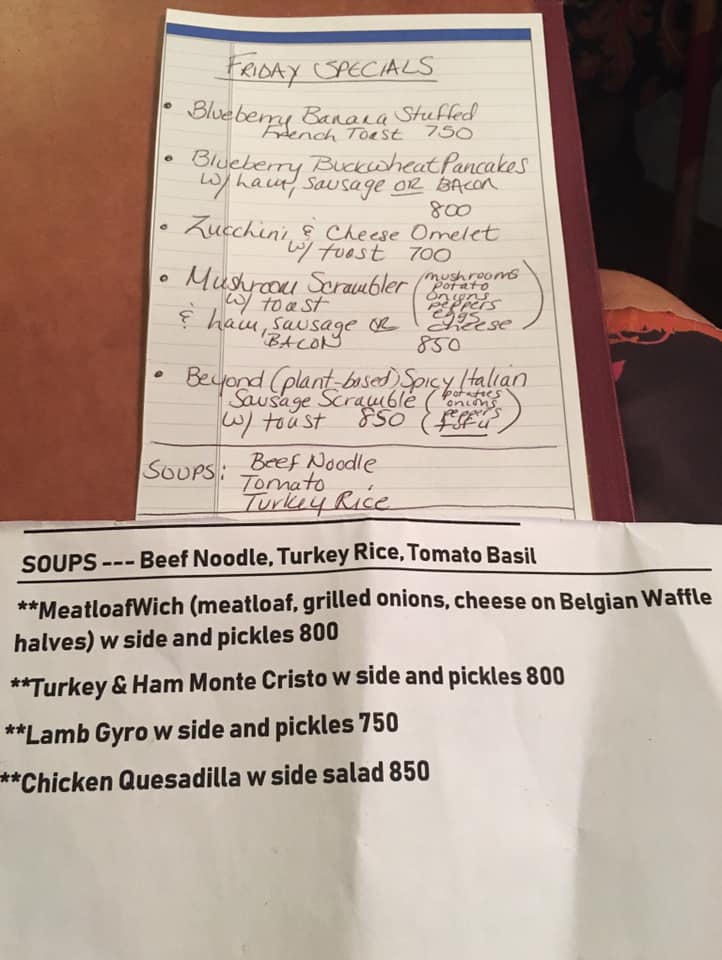 FRIDAY SPECIALS
• Blueberry Banana Stuffed
French Toast 750
• Blueberry Buckwheat Pancakes
w/ ham, sausage OR BACON
800
• Zucchini & Cheese Omelet
w/ toast 700
• Mushroom Scrambler (mushrooms
potato
w/ toast onions
peppers
& ham, sausage OR eggs
cheese)
BACON 850
• Beyond (plant-based) Spicy Italian
Sausage Scramble (potatoes
onions
w/ toast 850 peppers
tofu)
SOUPS: Beef Noodle
Tomato
Turkey Rice
SOUPS --- Beef Noodle, Turkey Rice, Tomato Basil
**MeatloafWich (meatloaf, grilled onions, cheese on Belgian Waffle
halves) w side and pickles 800
**Turkey & Ham Monte Cristo w side and pickles 800
**Lamb Gyro w side and pickles 750
**Chicken Quesadilla w side salad 850